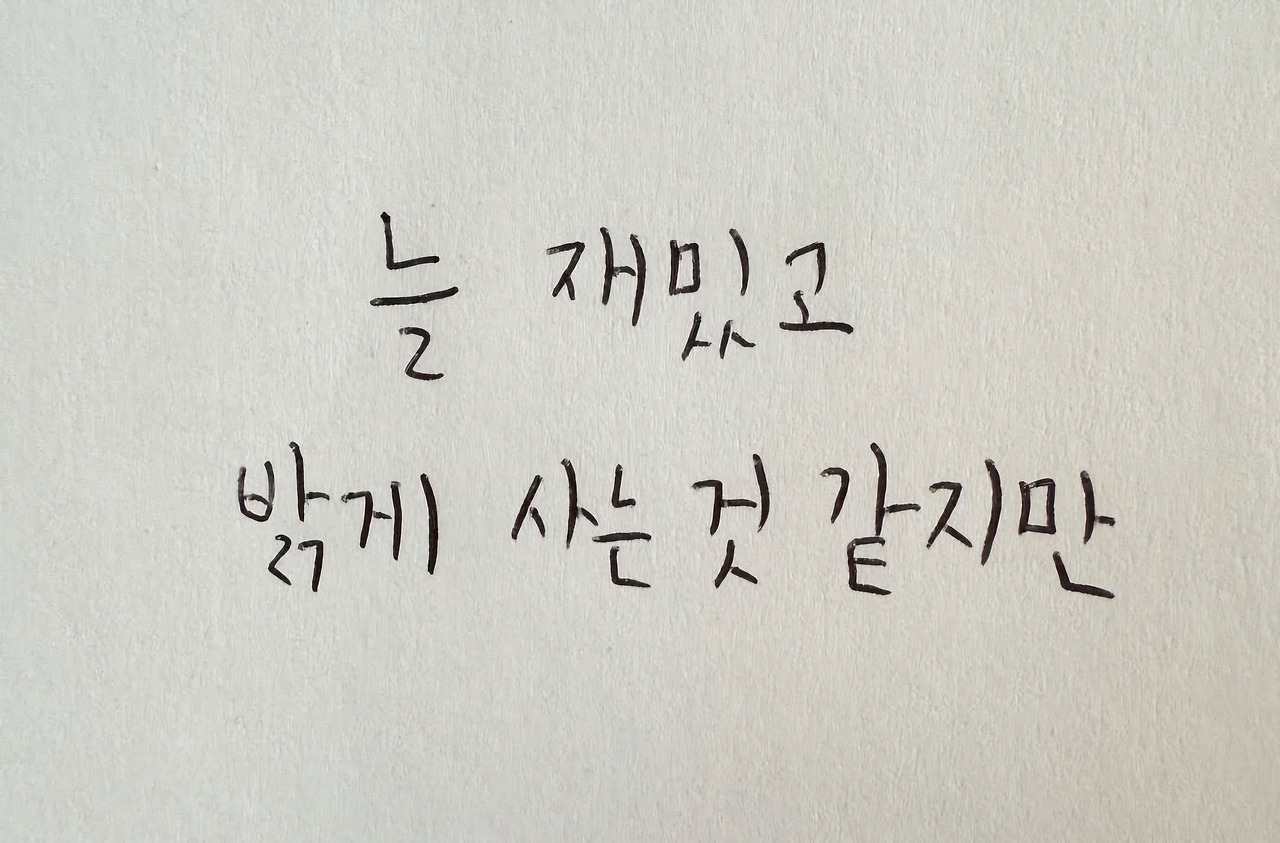 늘 재밌고
밝게 사는것 같지만